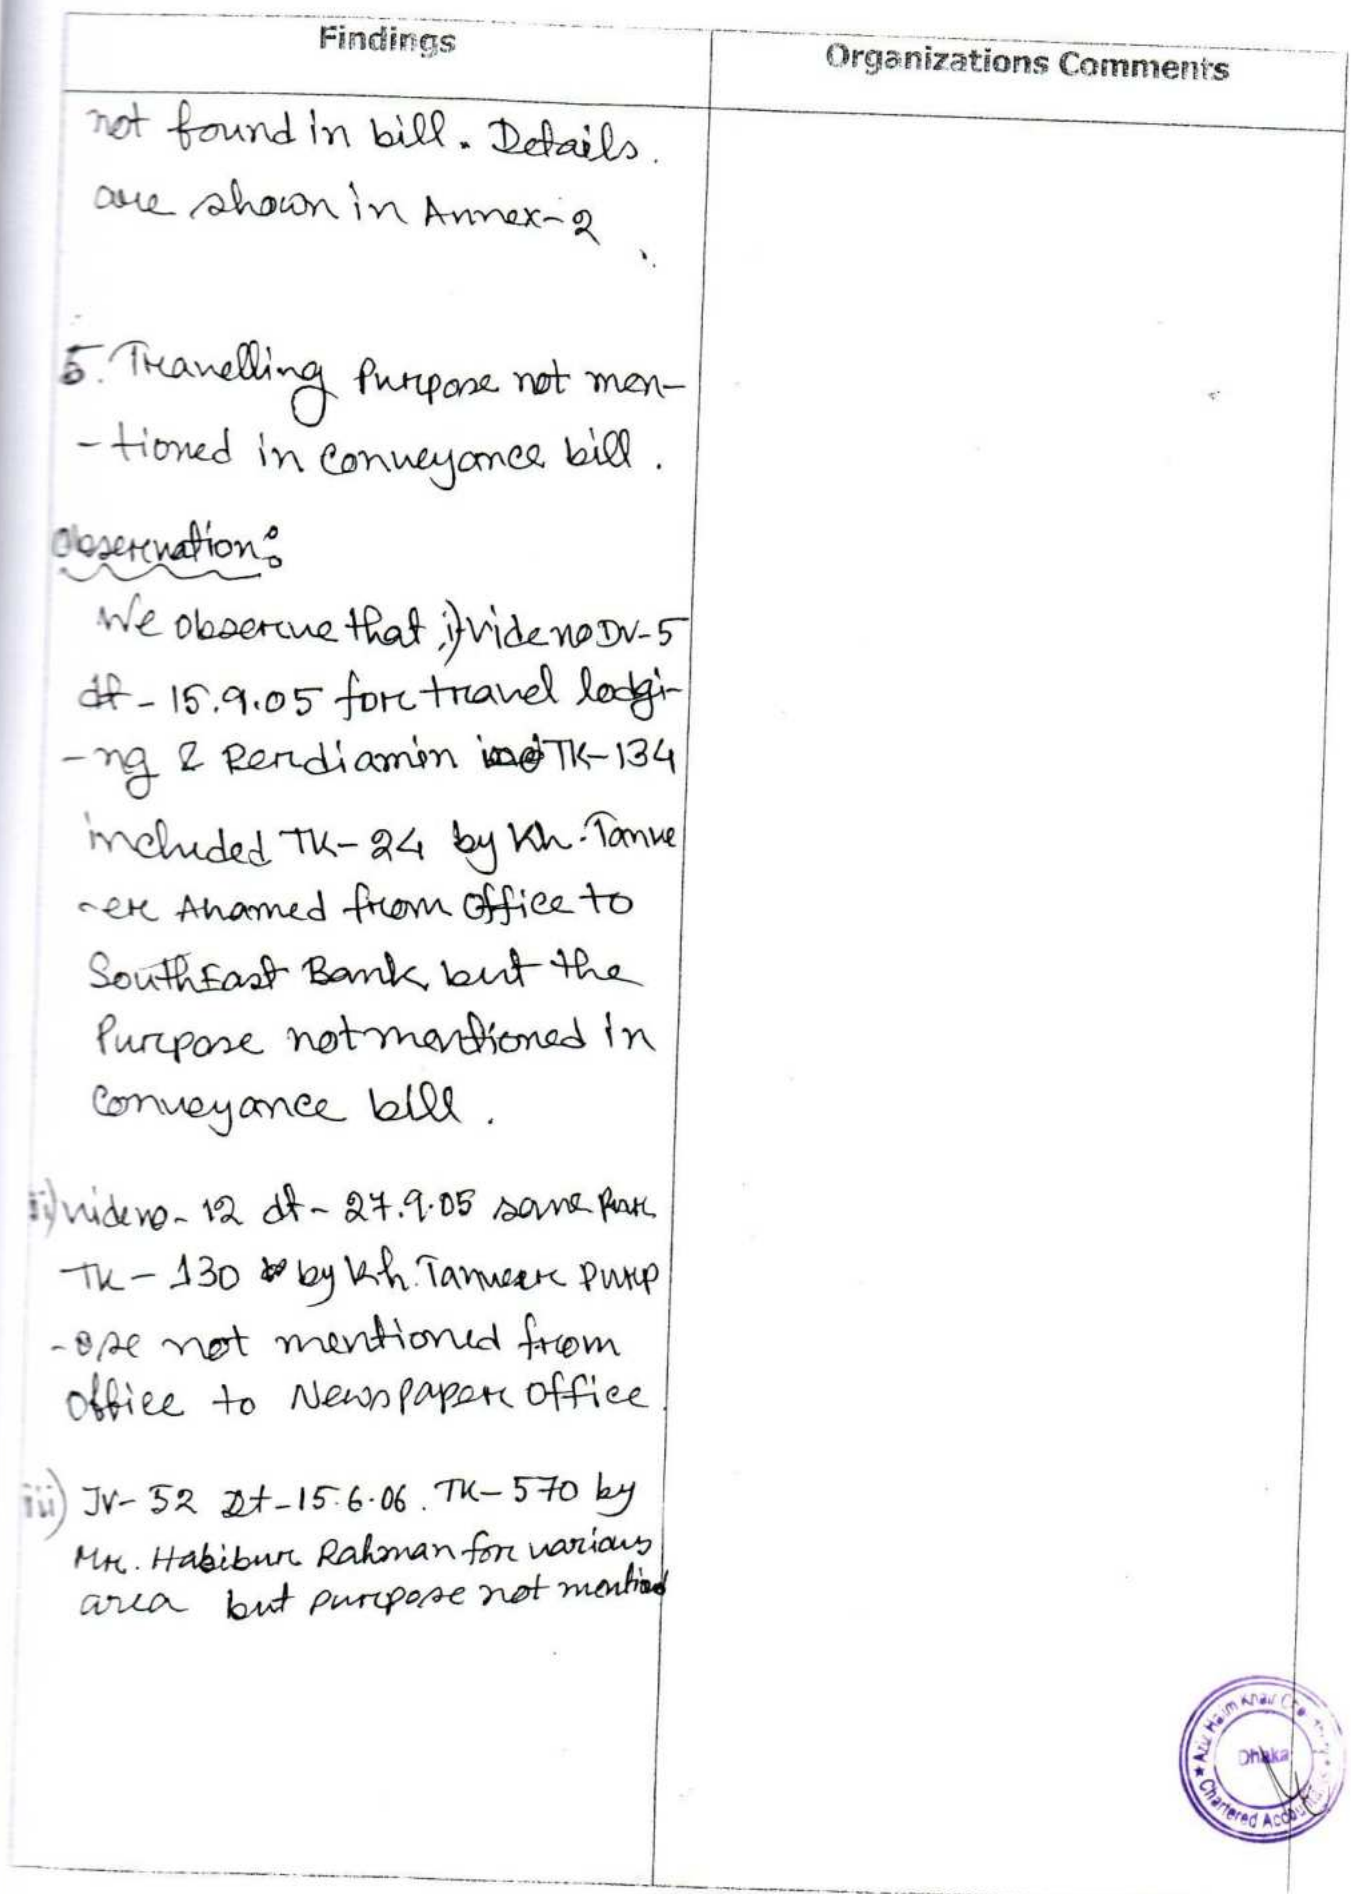 Findings
Organizations Comments
not found in bill. Details.
are shown in Annex-2
5. Travelling Purpose not men-
-tioned in conveyance bill.
Observation:
We observe that, i) vide no DV-5
dt - 15.9.05 for travel lodgi-
-ng & Perdiamin TK-134
included TK-24 by Kh. Tanve
-er Ahamed from office to
SouthEast Bank, but the
Purpose not mentioned in
Conveyance bill.
ii) vide no - 12 dt - 27.9.05 same
TK - 130 by Kh. Tanveer Purp
-ose not mentioned from
office to Newspaper office.
iii) JV- 52 Dt-15.6.06. TK-570 by
Mr. Habibur Rahman for various
area but purpose not mentioned
Aziz Halim Khair
Dhaka
Chartered